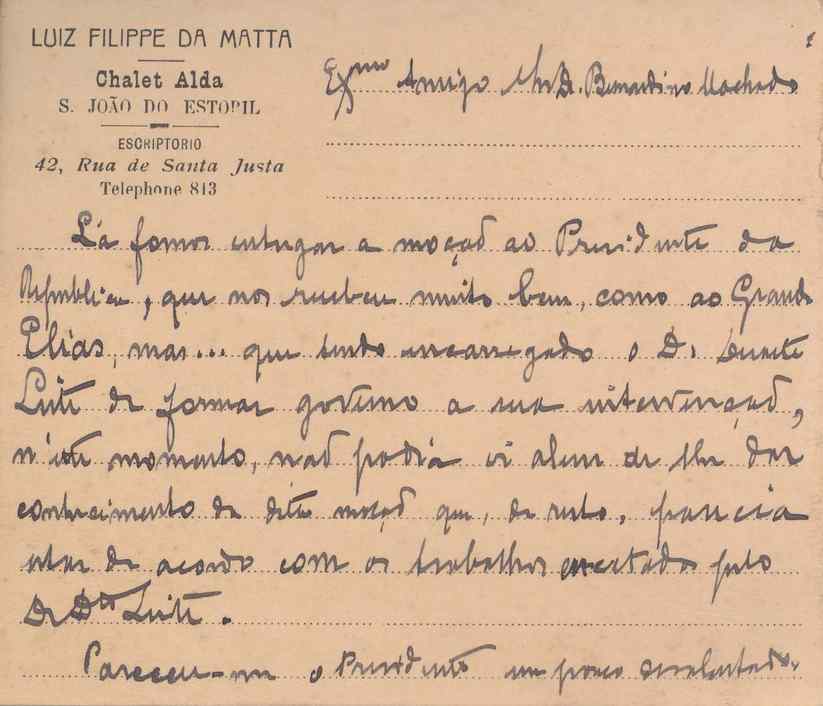 LUIZ FILIPPE DA MATTA
Chalet Alda
S. JOÃO DO ESTORIL
ESCRIPTORIO
42, Rua de Santa Justa
Telephone 813
Exmo Amigo Snr Dr. Bernardino Machado
Lá fomos entregar a moção ao Presidente da
Republica, que nos recebeu muito bem, como ao Grande
Elias, mas... que tendo encarregado o D. Duarte
Leite de formar governo a sua intervenção,
n'este momento, não podia ir alem de lhe dar
conhecimento da dita moção que, de resto, parecia
estar de acordo com os trabalhos encetados pelo
Dr Dte Leite.
Pareceu-me o Presidente um pouco